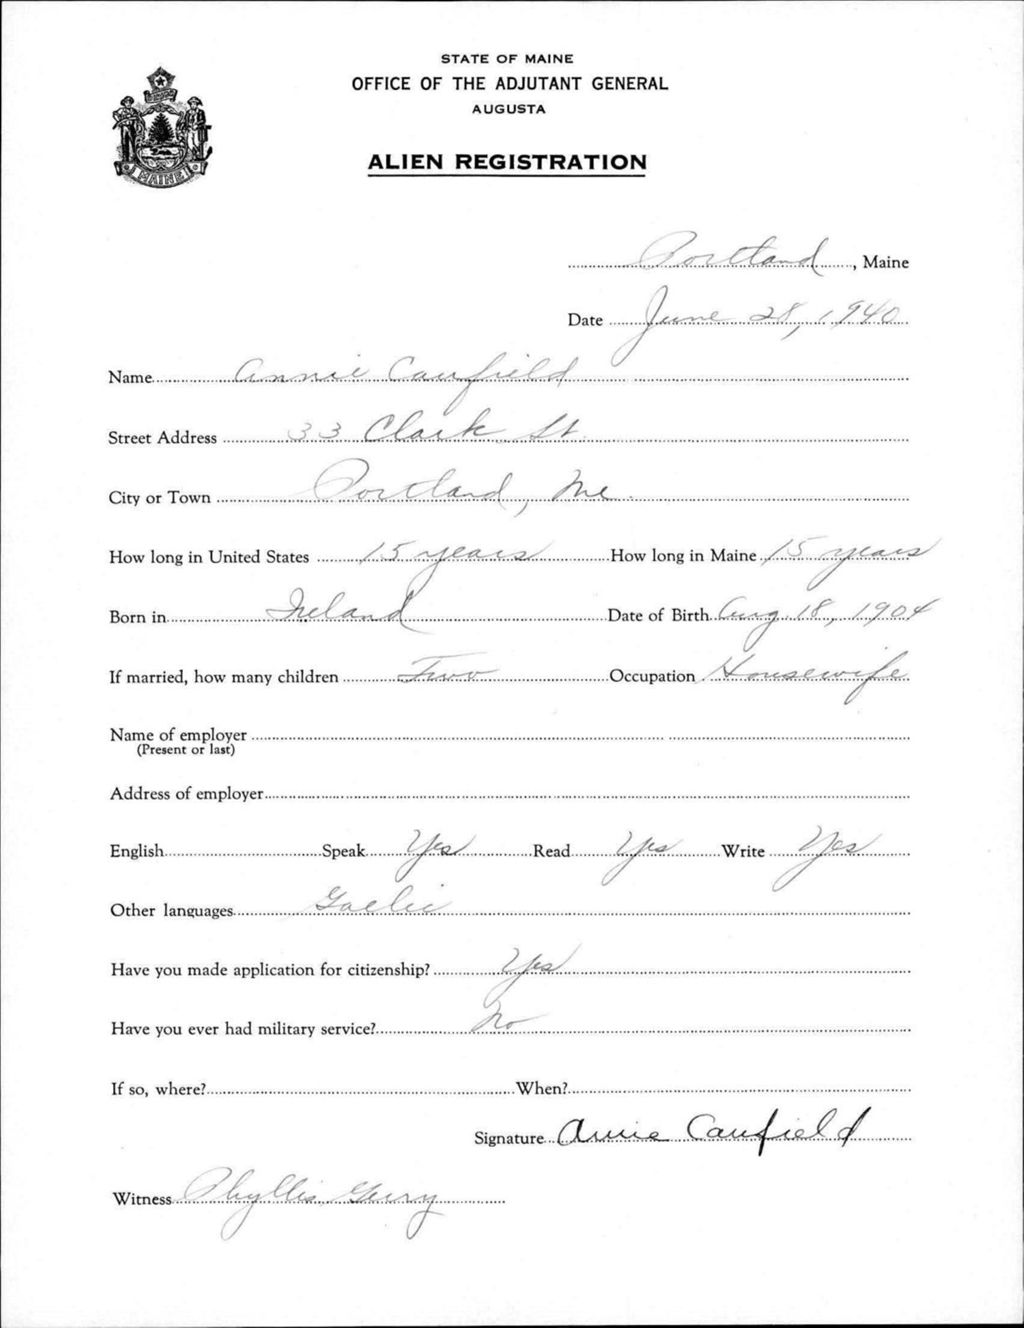 STATE OF MAINE
OFFICE OF THE ADJUTANT GENERAL
AUGUSTA
ALIEN REGISTRATION
MAINE
Portland, Maine
Date June 28, 1940
Name Annie Caufield
Street Address 33 Clark St.
City or Town Portland, Me.
How long in United States 15 years How long in Maine 15 years
Born in Ireland Date of Birth Aug 18, 1904
If married, how many children Two Occupation Housewife
Name of employer
(Present or last)
Address of employer
English Speak Yes Read Yes Write Yes
Other languages Gaelic
Have you made application for citizenship? Yes
Have you ever had military service? No
If so, where? When?
Signature Annie Caufield
Witness Phyllis